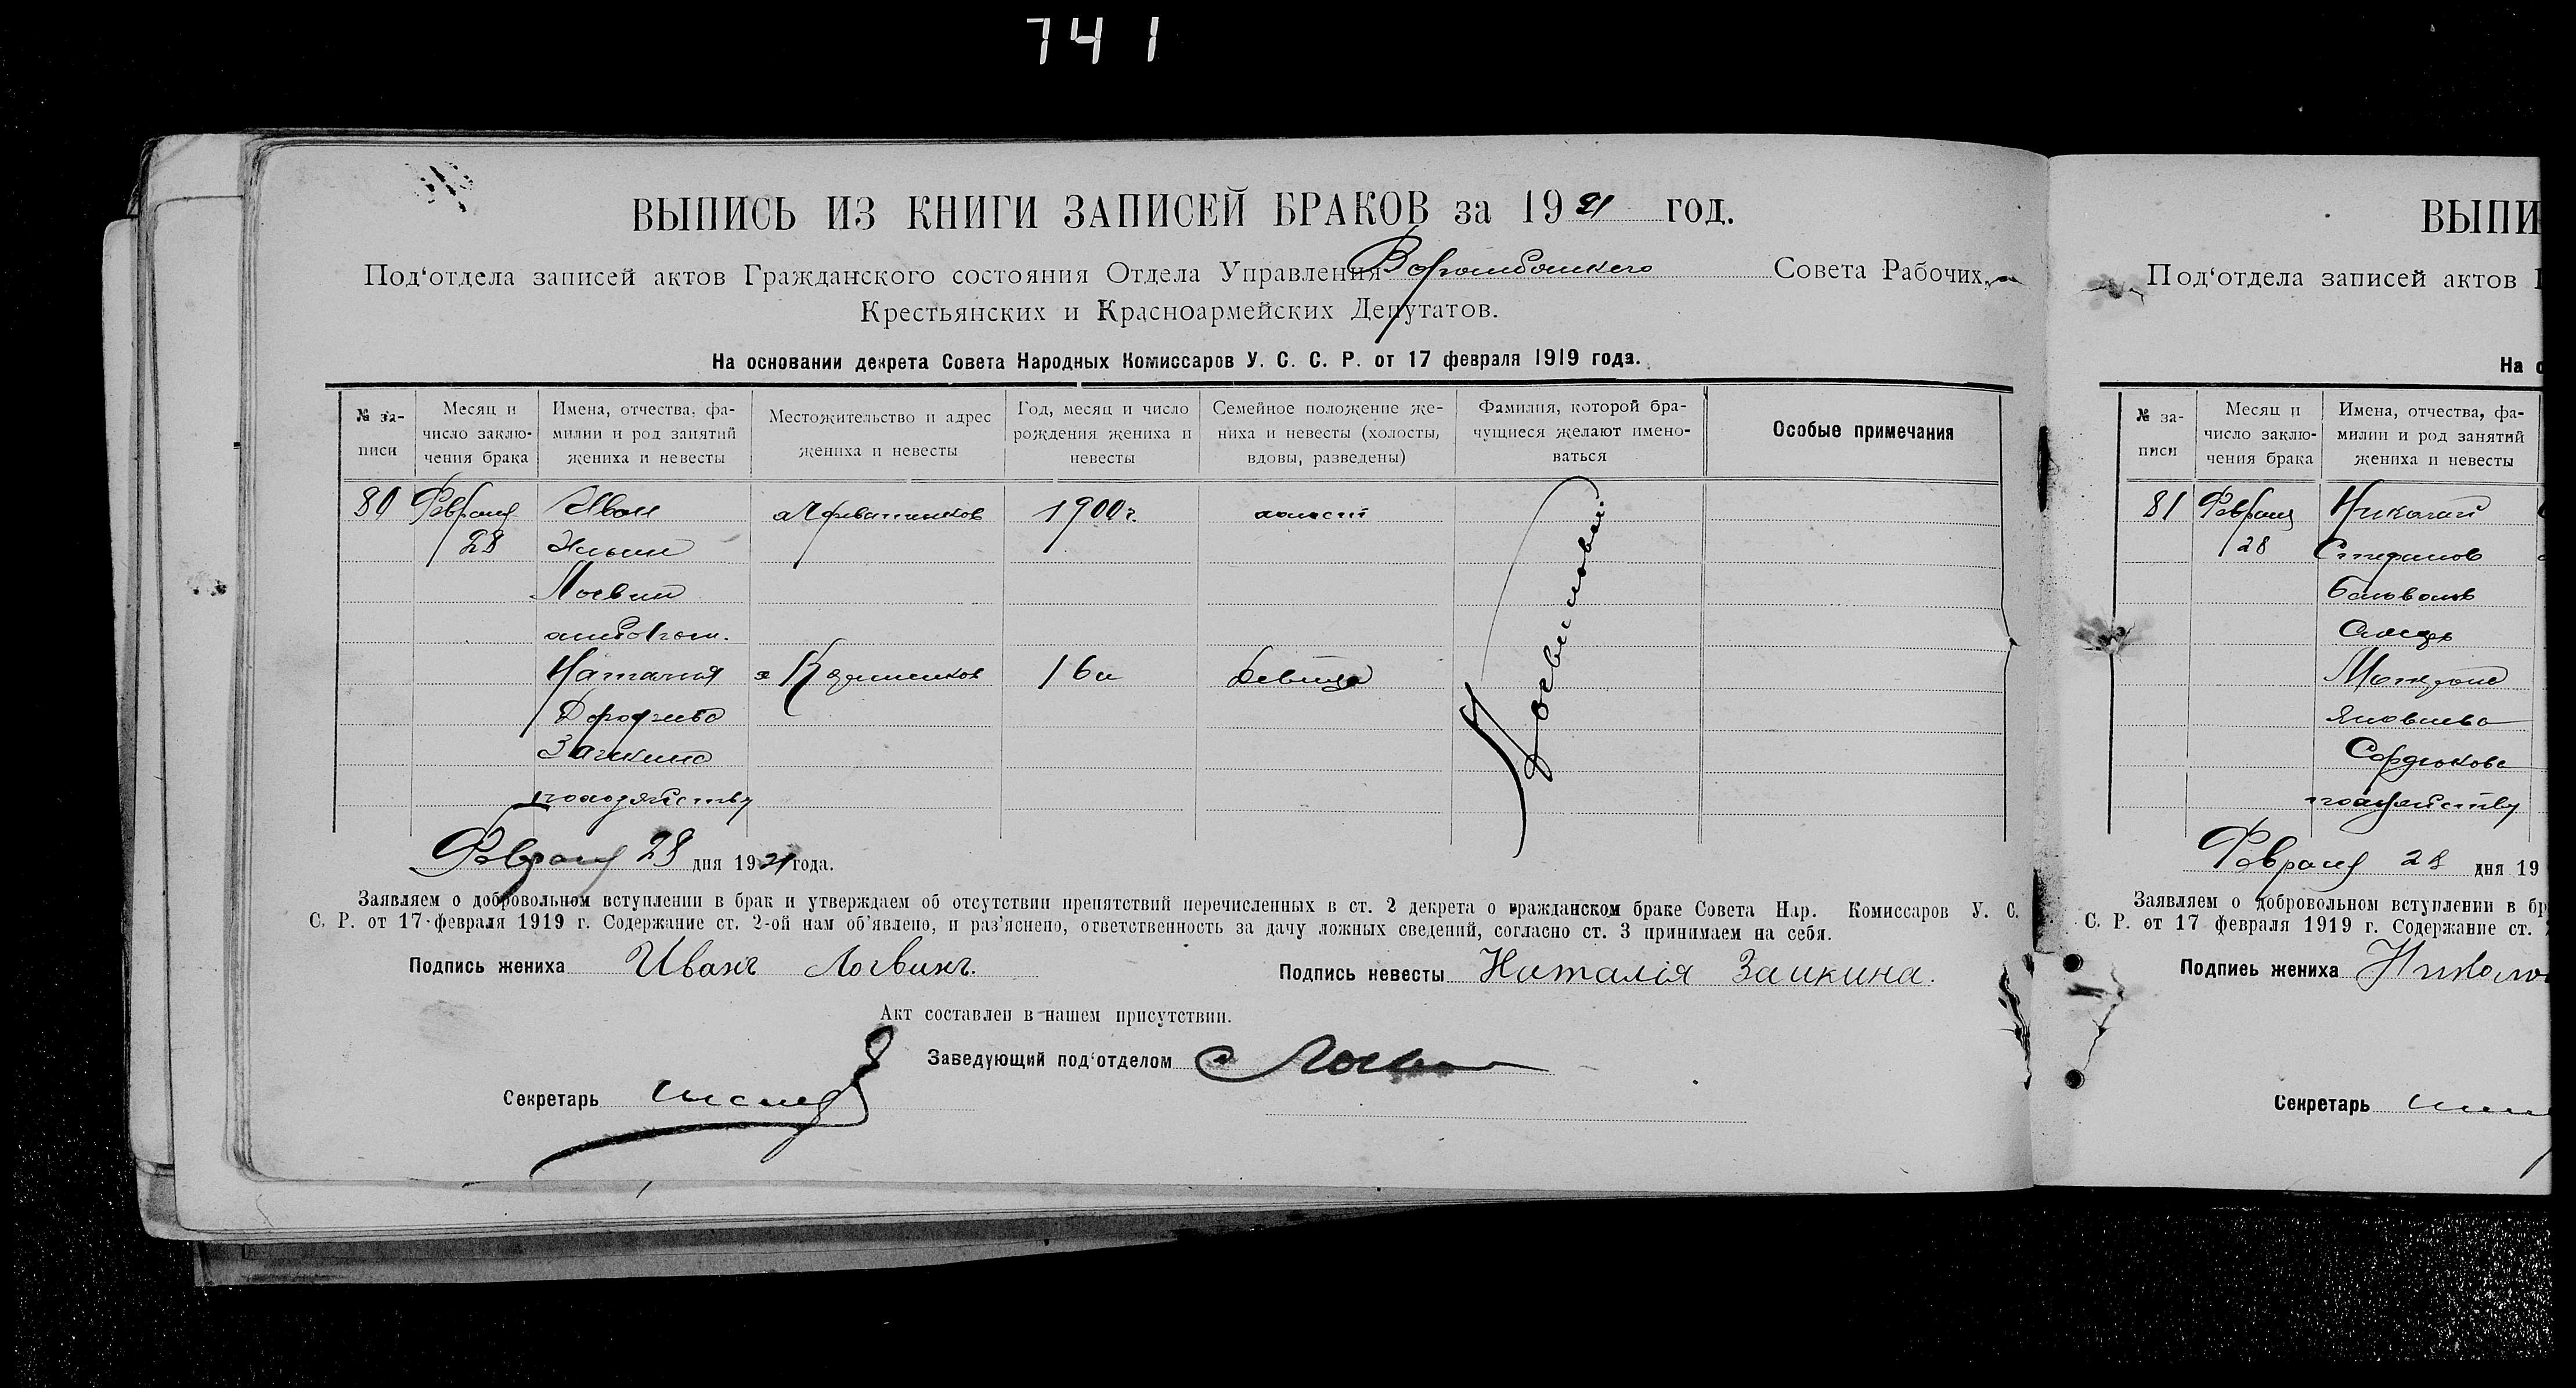 741
ВЫПИСЬ ИЗ КНИГИ ЗАПИСЕЙ БРАКОВ за 1921 год.
Под‘отдела записей актов Гражданского состояния Отдела Управления Совета Рабочих,
Крестьянских и Красноармейских Депутатов.
На основании декрета Совета Народных Комиссаров У. С. С. Р. от 17 февраля 1919 года.
№ за-
писи
Месяц и
число заклю-
чения брака
Имена, отчества, фа-
милии и род занятий
жениха и невесты
Местожительство и адрес
жениха и невесты
Год, месяц и число
рождения жениха и
невесты
Семейное положение же-
ниха и невесты (холосты,
вдовы, разведены)
Фамилия, которой бра-
чущиеся желают имено-
ваться
Особые примечания
80 Февраля Иван 1900 г. холост
28 Ильин
Логвин
Наталия 16 л девица
Дорофеева
Заикина
по хозяйству
Февраля 28 дня 1921 года.
Заявляем о добровольном вступлении в брак и утверждаем об отсутствии препятствий перечисленных в ст. 2 декрета о гражданском браке Совета Нар. Комиссаров У. С.
С. Р. от 17 февраля 1919 г. Содержание ст. 2-ой нам об‘явлено, и раз‘яснено, ответственность за дачу ложных сведений, согласно ст. 3 принимаем на себя.
Подпись жениха Иванъ Логвинъ.
Подпись невесты Наталія Заикина.
Акт составлен в нашем присутствии.
Заведующий под‘отделом
Секретарь
ВЫПИ
Под‘отдела записей актов
На о
№ за-
писи
Месяц и
число заклю-
чения брака
Имена, отчества, фа-
милии и род занятий
жениха и невесты
81 Февраля Николай
28 Стефанов
Яковлева
Сердюкова
по хозяйству
Февраля 28 дня 19
Заявляем о добровольном вступлении в бр
С. Р. от 17 февраля 1919 г. Содержание ст.
Подпись жениха
Секретарь